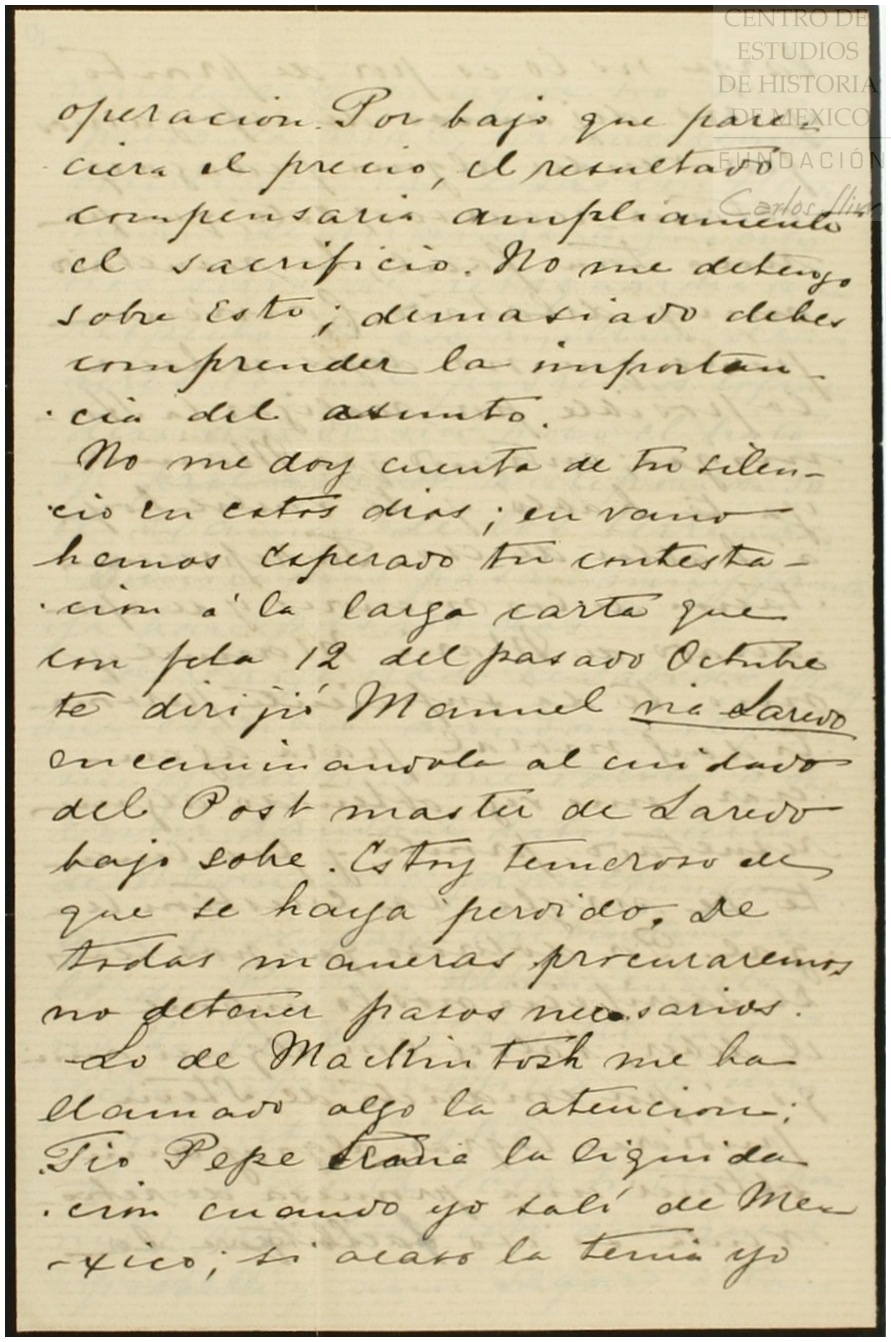 CENTRO DE
ESTUDIOS
DE HISTORIA
DE MEXICO
FUNDACIÓN
Carlos Slim
operacion. Por bajo que pare-
ciera el precio, el resultado
compensaria ampliamente
el sacrificio. No me detengo
sobre Esto; demasiado debes
comprender la importan-
cia del asunto.
No me doy cuenta de tu silen-
cio en estos dias; en vano
hemos Esperado tu contesta-
cion á la larga carta que
con fcha 12 del pasado Octubre
te dirijió Manuel via Laredo
encaminandola al cuidado
del Post master de Laredo
bajo sobre. Estoy temeroso de
que se haya perdido. De
todas maneras procuraremos
no detener pasos necesarios.
Lo de MacKintosh me ha
llamado algo la atencion;
Tio Pepe traia la liquida
cion cuando yo salí de Me-
-xico; si acaso la tenia yo